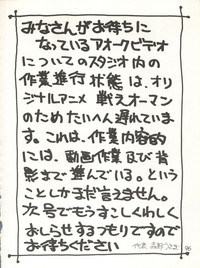 みなさんがお待ちに
なっているアオークビデオ
についてのスタジオ内の
作業進行状態は、オリ
ジナルアニメ 戦えオーマン
のためたいへん遅れていま
す。これは、作業内容的
には、動画作業及び背
景まで進んでいる。という
ことしかまだ言えません。
次号でもうすこしくわしく
おしらせするつもりですので
お待ちください
代表
96